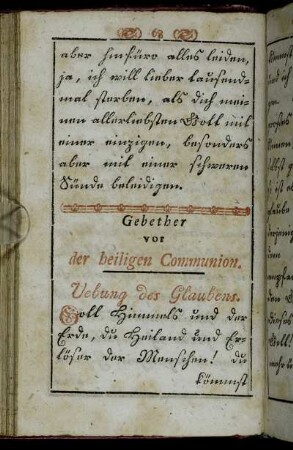 68
aber hinfüro alles leiden,
ja, ich will lieber tausend-
mal sterben, als dich mei-
nen allerliebsten Gott mit
einer einzigen, besonders
aber mit einer schweren
Sünde beleidigen.
Gebether
vor
der heiligen Communion.
Uebung des Glaubens.
Gott Himmels und der
Erde, du Heiland und Er-
löser der Menschen! du
kömmst